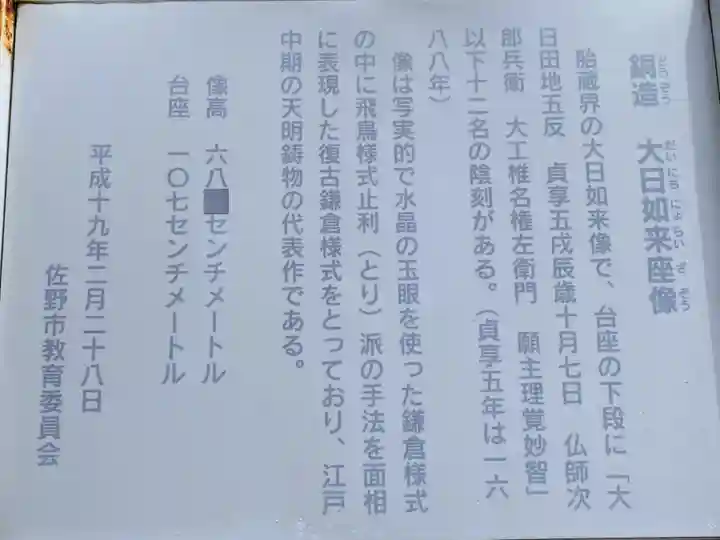 銅造　大日如来座像
胎蔵界の大日如来像で、台座の下段に「大
日田地五反　貞享五戌辰歳十月七日　仏師次
郎兵衛　大工椎名権左衛門　願主理覚妙智」
以下十二名の陰刻がある。（貞享五年は一六
八八年）
像は写実的で水晶の玉眼を使った鎌倉様式
の中に飛鳥様式止利（とり）派の手法を面相
に表現した復古鎌倉様式をとっており、江戸
中期の天明鋳物の代表作である。
像高　六八センチメートル
台座　一〇七センチメートル
平成十九年二月二十八日
佐野市教育委員会